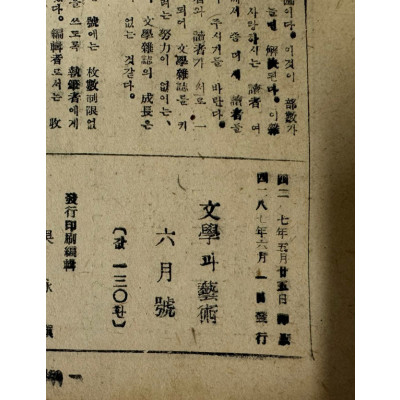 이다。이것이 部數가
解決된다。이 雜
사랑하시는 讀者 여
讀者를
주시기를 바란다。
者와 讀者가 서로 一
되어 文學雜誌를 키
는 努力이 없이는、
文學雜誌의 成長은
없는 것같다。
號에는 枚數制限없
를 쓰도록 執筆者에게
다。編輯者로서는 收
七年五月廿五日
四二八七年六月一日發行
文學과 藝術
六月號
〔값 一三〇환〕
發行印刷編輯
泳